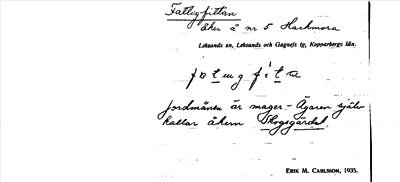 Fattigfittan
Åker å nr 5 Hackmora
Leksands sn, Leksands och Gagnefs tg, Kopparbergs län.
fatug fita
Jordmånen är mager. - Ägaren själv
kallar åkern Skogsgärdet
ERIK M. CARLSSON, 1935.